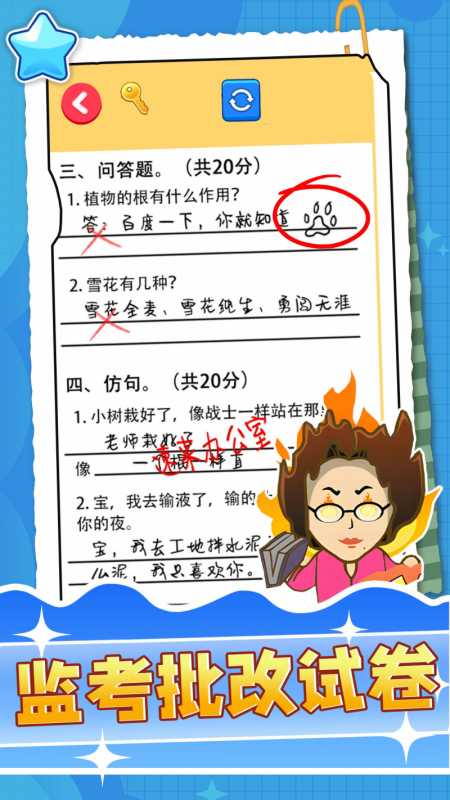 三、问答题。（共20分）
1.植物的根有什么作用?
答：百度一下，你就知道
2.雪花有几种?
雪花全麦、雪花纯生、勇闯天涯
四、仿句。（共20分）
1.小树栽好了，像战士一样站在那
老师栽好了
速来办公室
像 一 根 样直
2.宝，我去输液了，输的
你的夜。
宝，我去工地拌水泥
么泥，我只喜欢你。
监考批改试卷